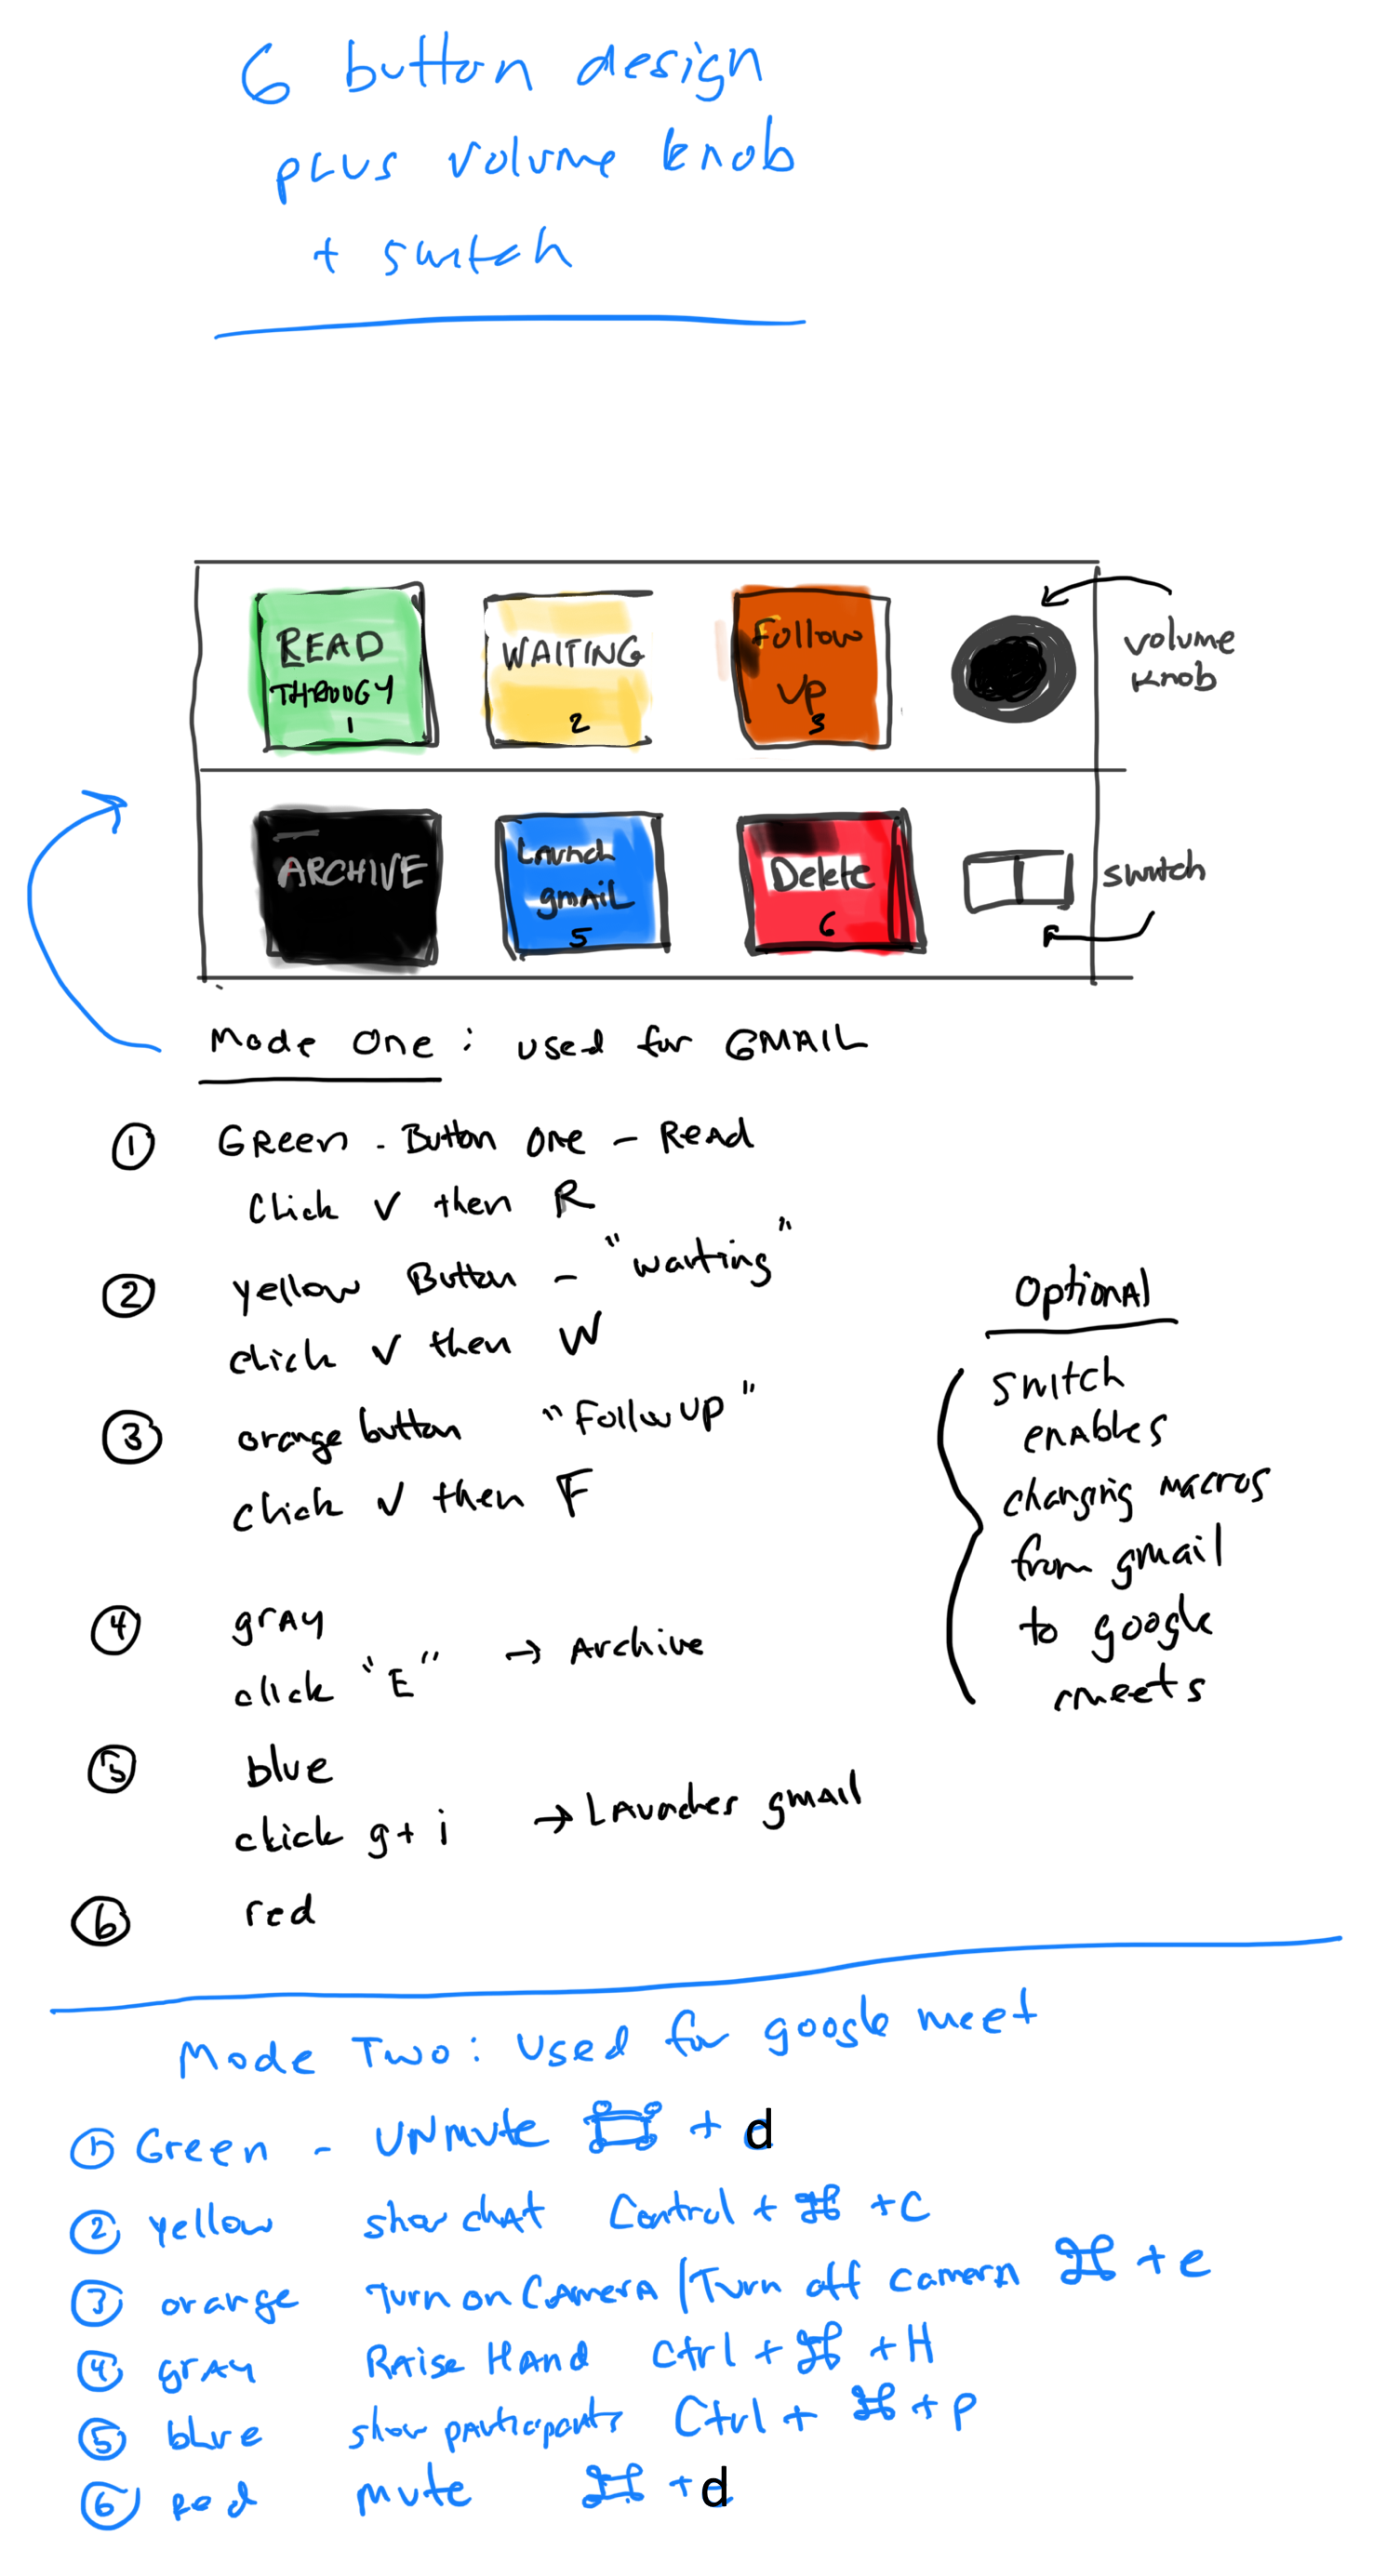 6 button design
plus volume knob
+ switch
READ
THROUGY
1
WAITING
2
Follow
UP
3
volume
knob
ARCHIVE
Launch
gmail
5
Delete
6
switch
Mode One: used for GMAIL
1 Green - Button one - Read
Click V then R
2 yellow Button - "waiting"
click V then W
3 orange button "Follow UP"
click V then F
4 gray
click "E" → Archive
5 blue
click g+i → Launches gmail
6 red
Optional
switch
enables
changing macros
from gmail
to google
meets
Mode Two: Used for google meet
1 Green - UNmute ⌘ + d
2 yellow show chat Control + ⌘ + C
3 orange Turn on Camera / Turn off camera ⌘ + e
4 gray Raise Hand Ctrl + ⌘ + H
5 blue show participants Ctrl + ⌘ + P
6 Red mute ⌘ + d